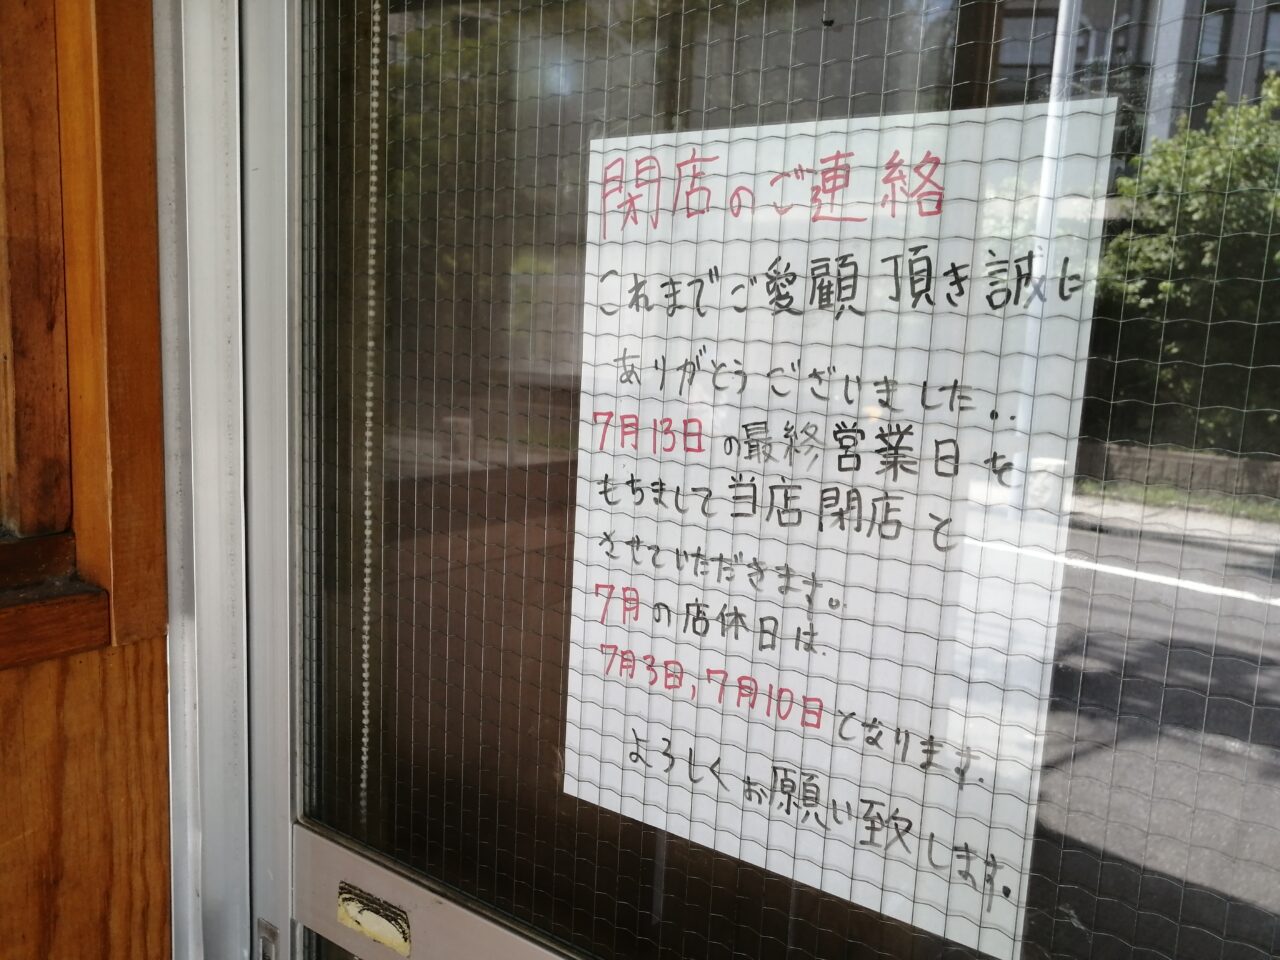 閉店のご連絡
これまでご愛顧頂き誠に
ありがとうございました..
7月13日の最終営業日を
もちまして当店閉店と
させていただきます。
7月の店休日は
7月3日,7月10日となります.
よろしくお願い致します。